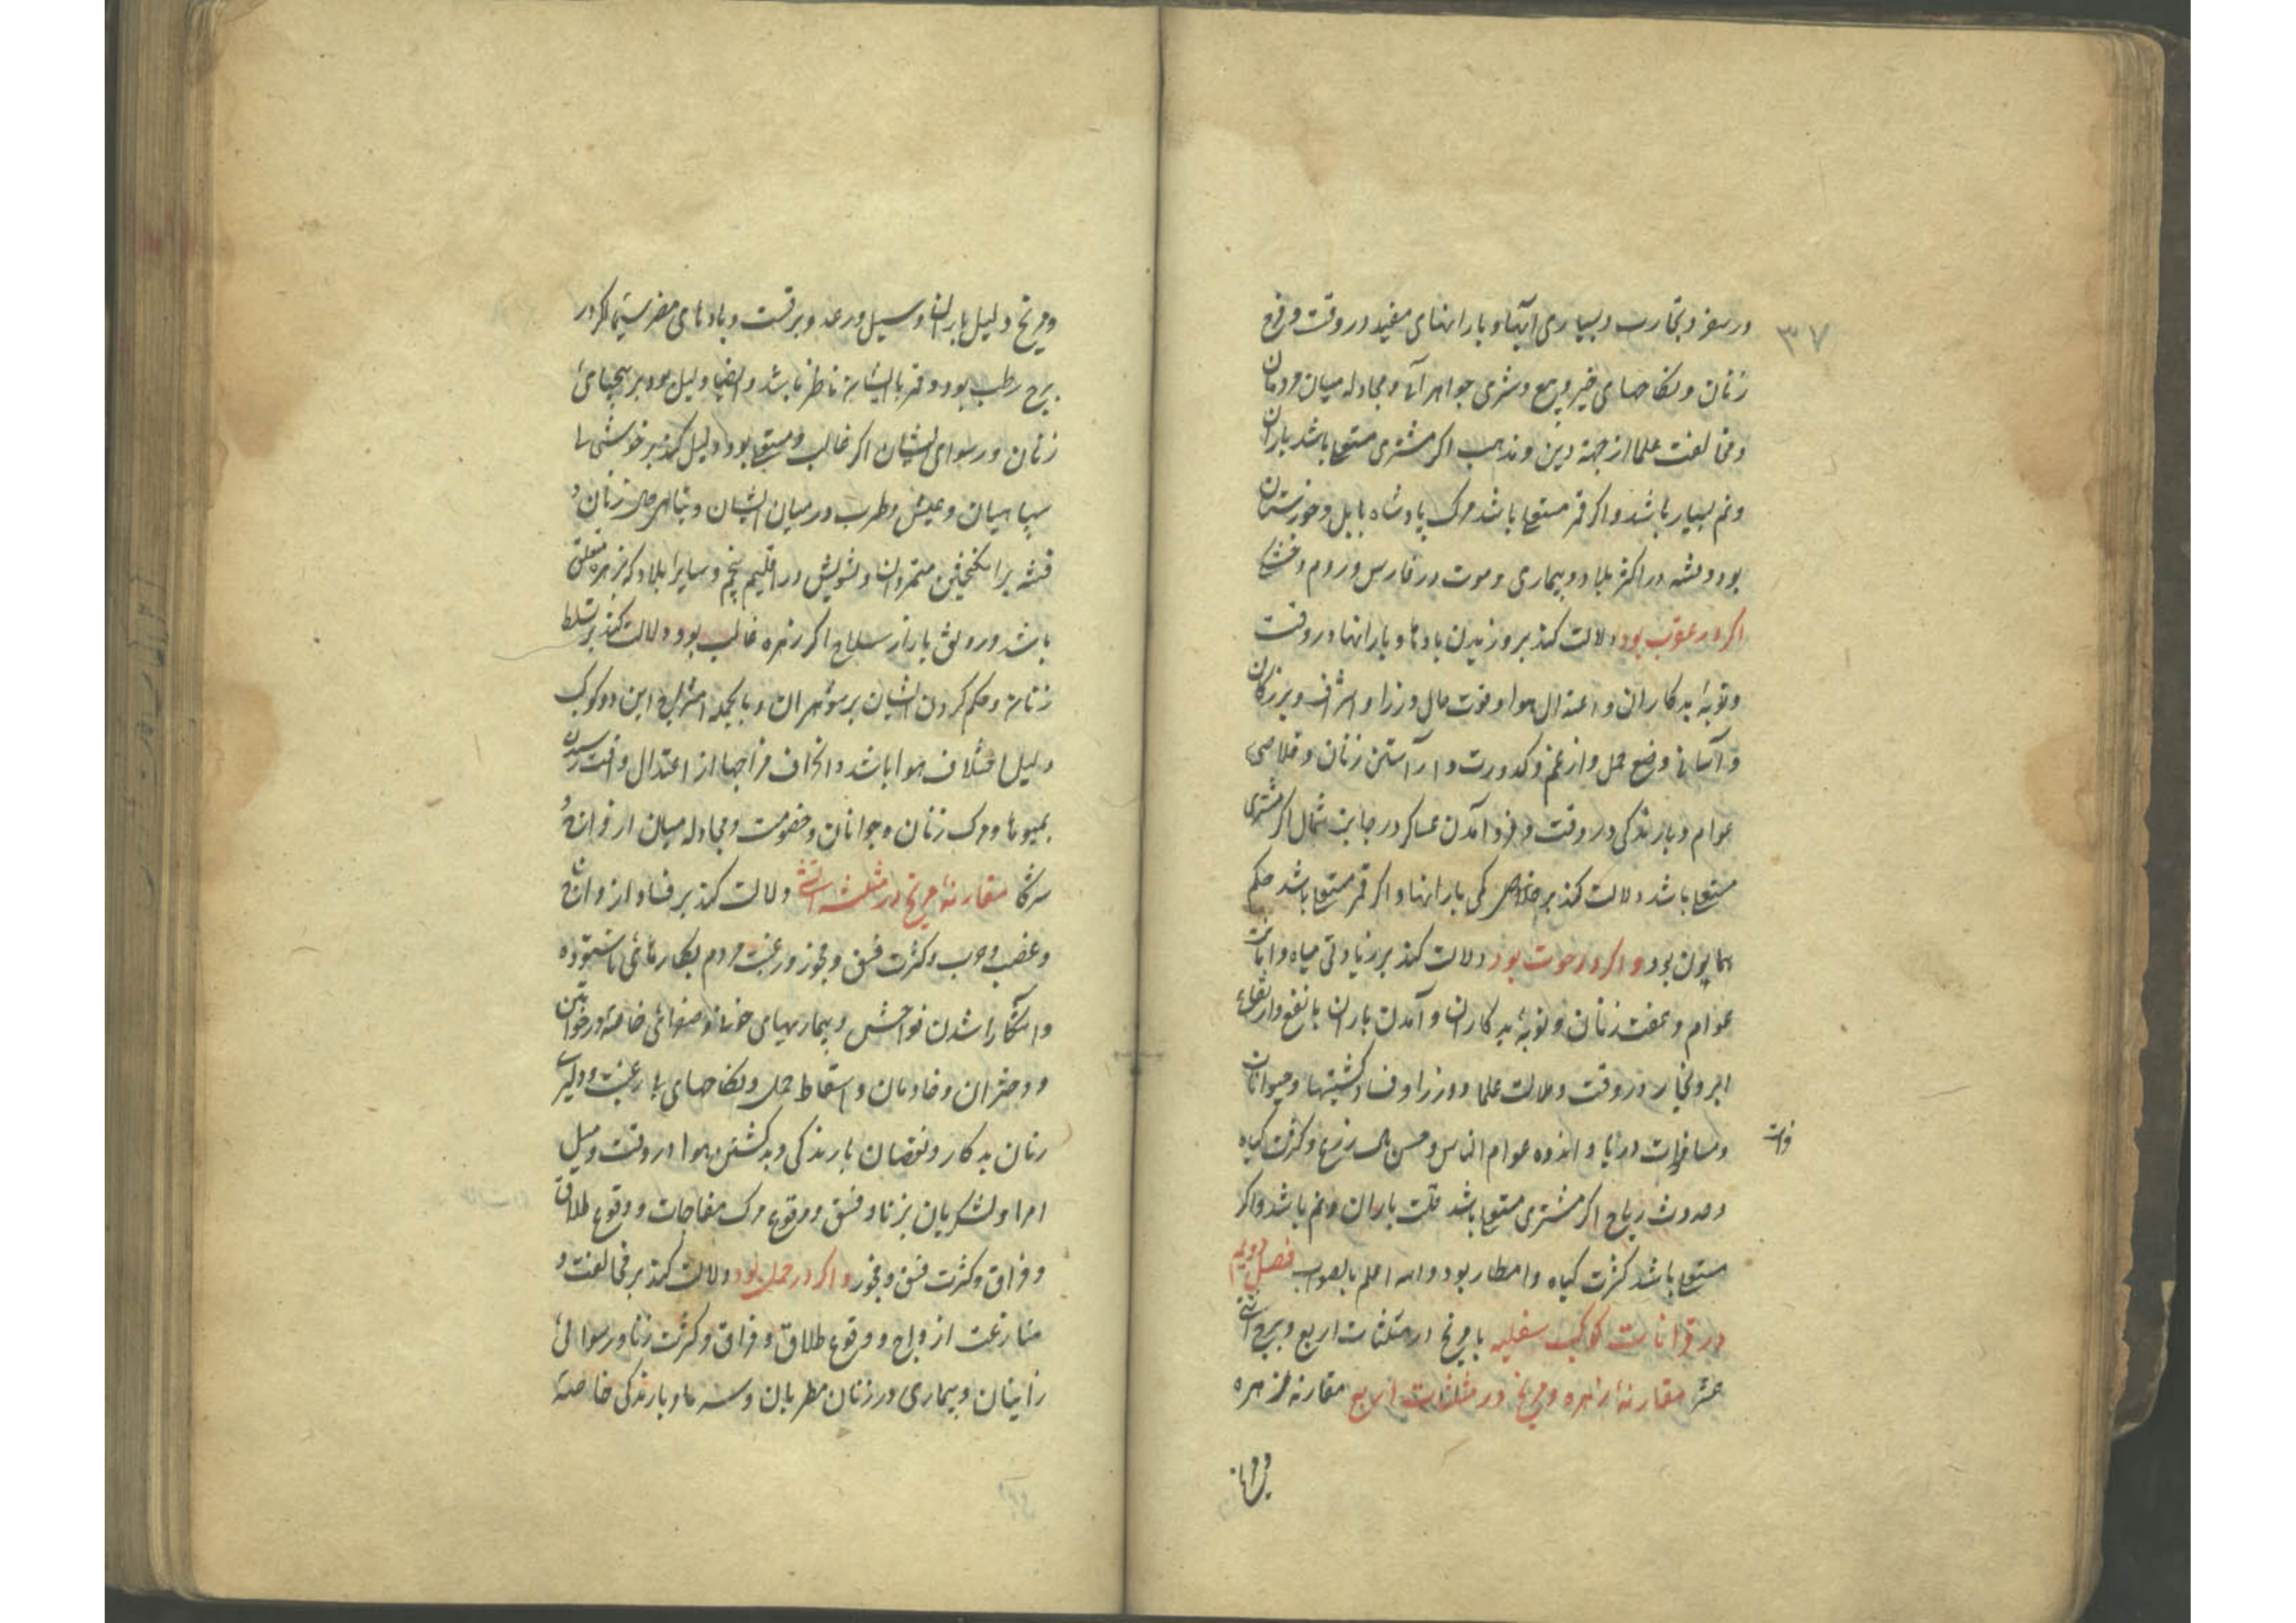 ۳۷
در سفر و تجارب و بسیاری آبها و بارانهای مفید در وقت و فرح
زنان و نکاحهای خیر و بیع و شری جواهر آما و مجادله میان مردمان
و مخالفت علما از جهة دین و مذهب اکر مشتری مستعلی باشد باران
و نم بسیار باشد و اکر قمر مستعلی باشد مرک پادشاه بابل و خوزستان
بود و فتنه در اکثر بلاد و بیماری و موت در فارس و روم و
اکر در عقرب بود دلالت کند بر وزیدن بادها و بارانها در وقت
و توبهٔ بدکاران و اعتدال هوا و فوت مال وزرا و اشراف و بزرکان
و آسانی وضع حمل و از غم و کدورت و آراستن زنان و خلاصی
عوام و بارندکی در وقت و فرود آمدن عساکر در جانب شمال اکر مشتری
مستعلی باشد دلالت کند بر کمی بارانها و اکر قمر مستعلی باشد حکم
همایون بود و اکر در حوت بود دلالت کند بر زیادتی میاه و
عوام و عفت زنان و توبهٔ بدکاران و آمدن باران با نفع و ارتفاع
ابر و بخار در وقت و ملالت علما و وزرا و فساد کشتیها و حیوانات
و مسافرات دریا و اندوه عوام الناس و حسن حال زرع و کثرت کیاه
وات
و حدوث ریاح اکر مشتری مستعلی باشد قلت باران و نم باشد و اکر
مستعلی باشد کثرت کیاه و امطار بود و الله اعلم بالصواب فصل دویم
در قرانات کواکب سفلیه با مریخ در مثلثات اربع و بروج اثنی
عشر مقارنهٔ زهره و مریخ در مثلثات اربع مقارنه زهره
و مریخ
و مریخ دلیل باران و سیل و رعد و برقست و بادهای مضر سیما که در
برج رطب بود و قمر بایشان ناظر باشد و ایضا دلیل بود بر بیحیای
زنان و رسوای ایشان اکر غالب و مستعلی بود دلیل کند بر خوشی
سپاهیان و عیش و طرب در میان ایشان و تباهی حال زنان و
فتنه برانکیختن متمردان و تشویش در اقلیم پنجم و سایر بلاد که بزهره متعلق
باشد و رونق بازار سلاح اکر زهره غالب بود دلالت کند بر تسلط
زنان و حکم کردن ایشان بر شوهران و بالجمله امتزاج این دو کوکب
دلیل اختلاف هوا باشد و انحراف مزاجها از اعتدال و آفت رسیدن
بمیوها و مرک زنان و جوانان و خصومت و مجادله میان ازواج و
شرکا مقارنهٔ مریخ در مثلثه آتشی دلالت کند بر فساد ازواج
و غضب و حرب و کثرت فسق و فجور و رغبت مردم بکارهائی ناستوده
و آشکارا شدن فواحش و بیماریهای خونی و صفرائی خاصة در خواتین
و دختران و خادمان و اسقاط حمل و نکاحهای با رغبت و دلیری
زنان بدکار و نقصان بارندکی و بد کشتن هوا در وقت و میل
امرا و لشکریان بزنا و فسق و وقوع مرک مفاجات و وقوع طلاق
و فراق و کثرت فسق و فجور و اکر در حمل بود دلالت کند بر مخالفت و
منازعت ازواج و وقوع طلاق و فراق و کثرت زنا و رسوائی
زانیان و بیماری در زنان مطربان و سرما و بارندکی خاصة